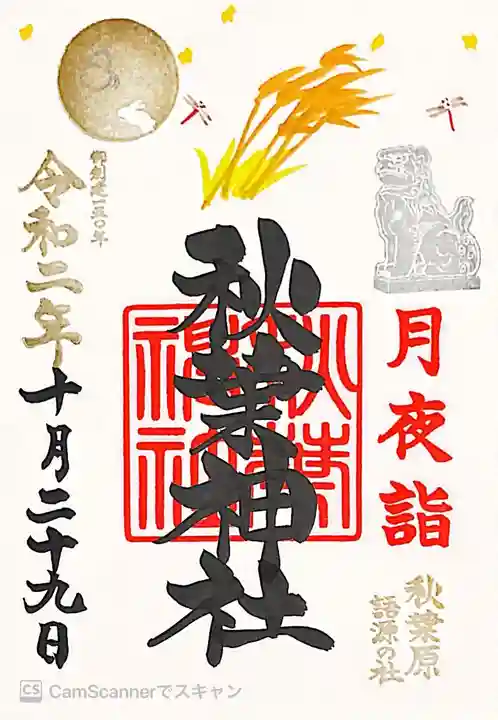 月夜詣
秋葉原
語源の社
秋葉神社
秋葉
神社
御創建一五〇年
令和二年十月二十九日
CS CamScannerでスキャン